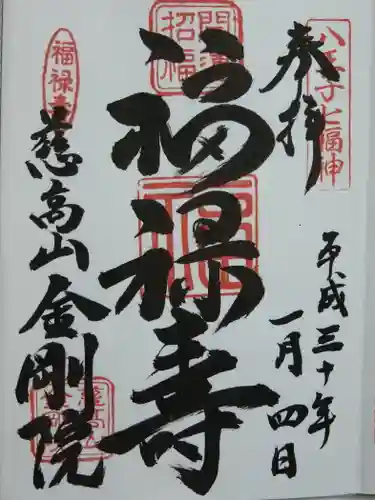 八王子七福神
奉拝
平成三十年
一月四日
開運
招福
福禄寿
福禄寿
慈高山金剛院